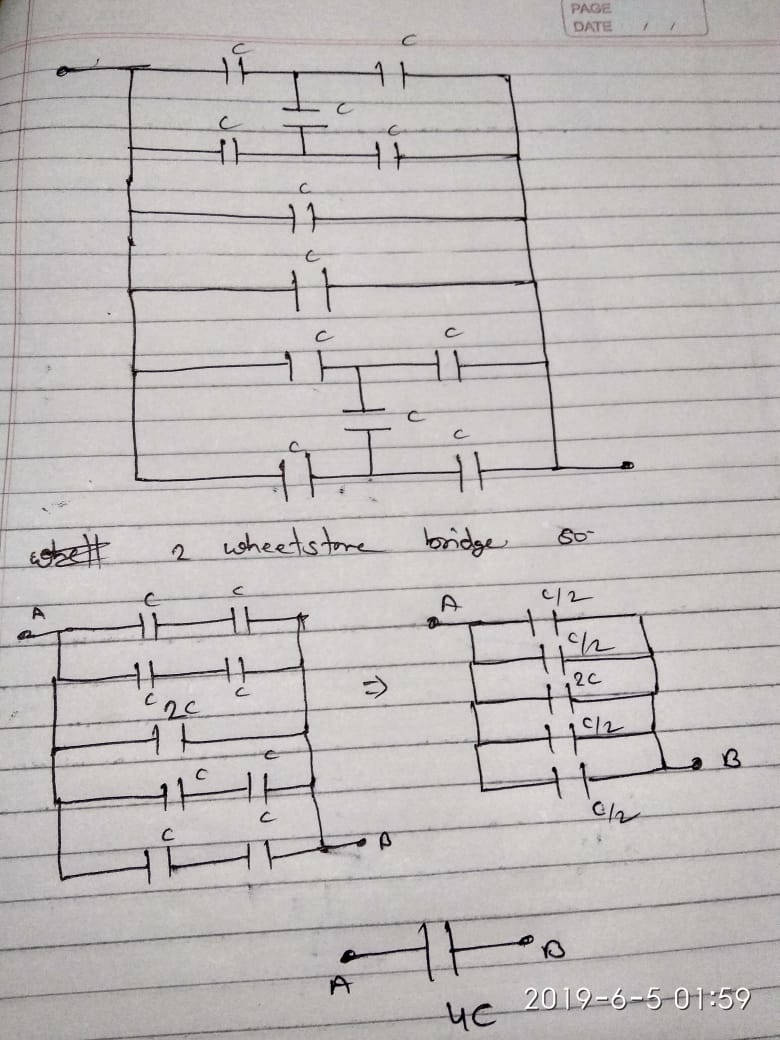 PAGE
DATE / /
C C
C
C C
C
C
C C
C
C C
2 wheetstone bridge so
A C C
C C
2C
C C
C C
B
A C/2
C/2
2C
C/2
C/2
B
⇒
A B
4C
2019-6-5 01:59